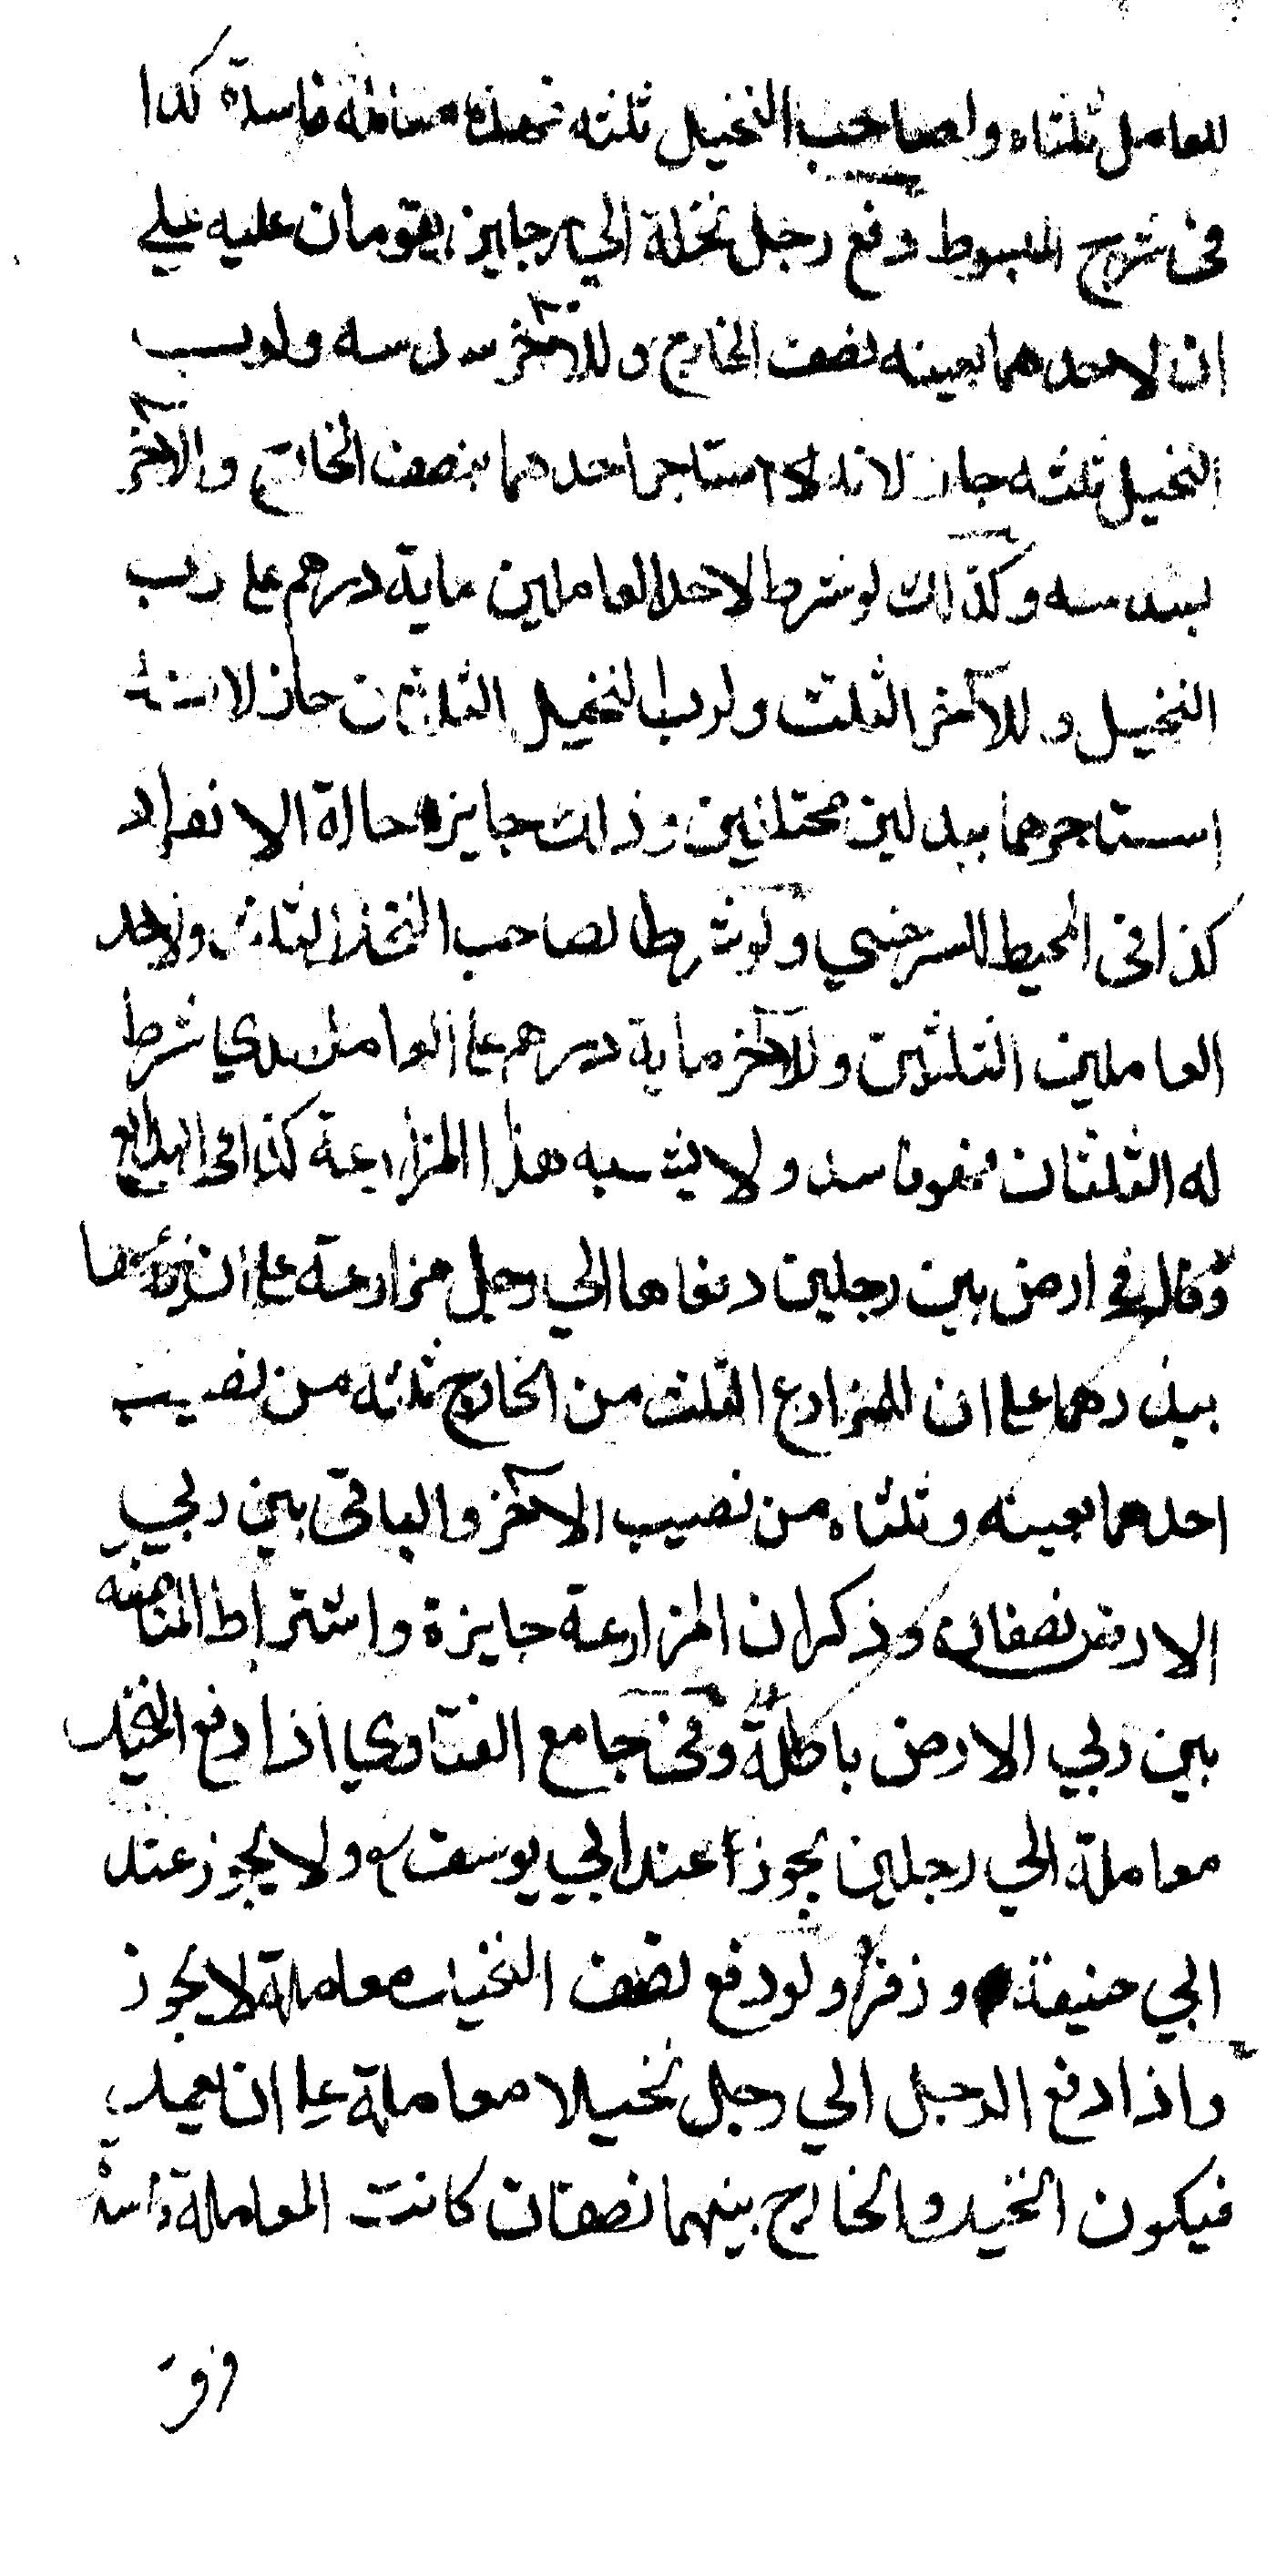 للعامل ثلثاه ولصاحب النخيل ثلثه فهذه معاملة فاسدة كذا
في شرح المبسوط دفع رجل نخلة الي رجلين يقومان عليه علي
ان لاحدهما بعينه نصف الخارج وللآخر سدسه ولرب
النخيل ثلثه جاز لانه استاجر احدهما بنصف الخارج والآخر
بسدسه وكذلك لو شرط لاحد العاملين ماية درهم علي رب
النخيل وللآخر الثلث ولرب النخيل الثلثين جاز لانه
استاجرهما ببدلين مختلفين وذلك جايز حالة الانفراد
كذا في المحيط للسرخسي ولو شرطا لصاحب النخل الثلث ولاحد
العاملين الثلثين وللآخر ماية درهم علي العامل الذي شرط
له الثلثان فهو فاسد ولا يشبه هذا المزارعة كذا في البدايع
وقال في ارض بين رجلين دفعاها الي رجل مزارعة علي ان يزرعها
ببذرهما علي ان للمزارع الثلث من الخارج ثلثه من نصيب
احدهما بعينه وثلثاه من نصيب الآخر والباقي بين ربي
الارض نصفان وذكر ان المزارعة جايزة واشتراط المناصفة
بين ربي الارض باطلة وفي جامع الفتاوي اذا دفع النخيل
معاملة الي رجلين يجوز عند ابي يوسف ولا يجوز عند
ابي حنيفة وزفر ولو دفع نصف النخيل معاملة لا يجوز
واذا دفع الرجل الي رجل نخيلا معاملة علي ان يعمل
فيكون النخيل والخارج بينهما نصفان كانت المعاملة فاسدة